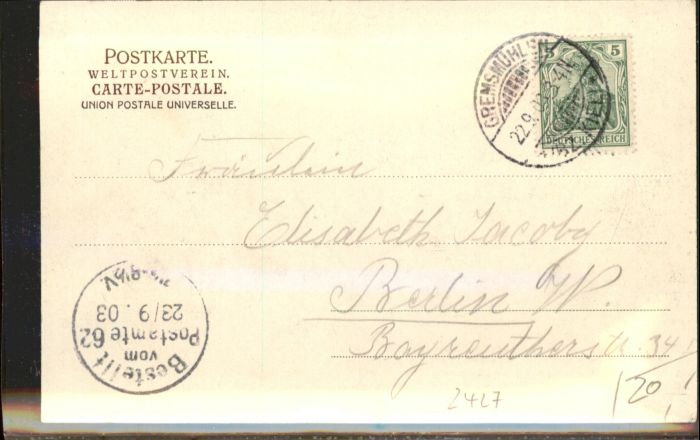 POSTKARTE.
WELTPOSTVEREIN.
CARTE-POSTALE.
UNION POSTALE UNIVERSELLE.
GREMSMÜHLEN
22.9.
5 5
DEUTSCHES REICH
Fräulein
Elisabeth Jacoby
Berlin W.
Bayreutherstr. 34
Bestellt
vom
Postamte 62
23/9. 03
2427
120